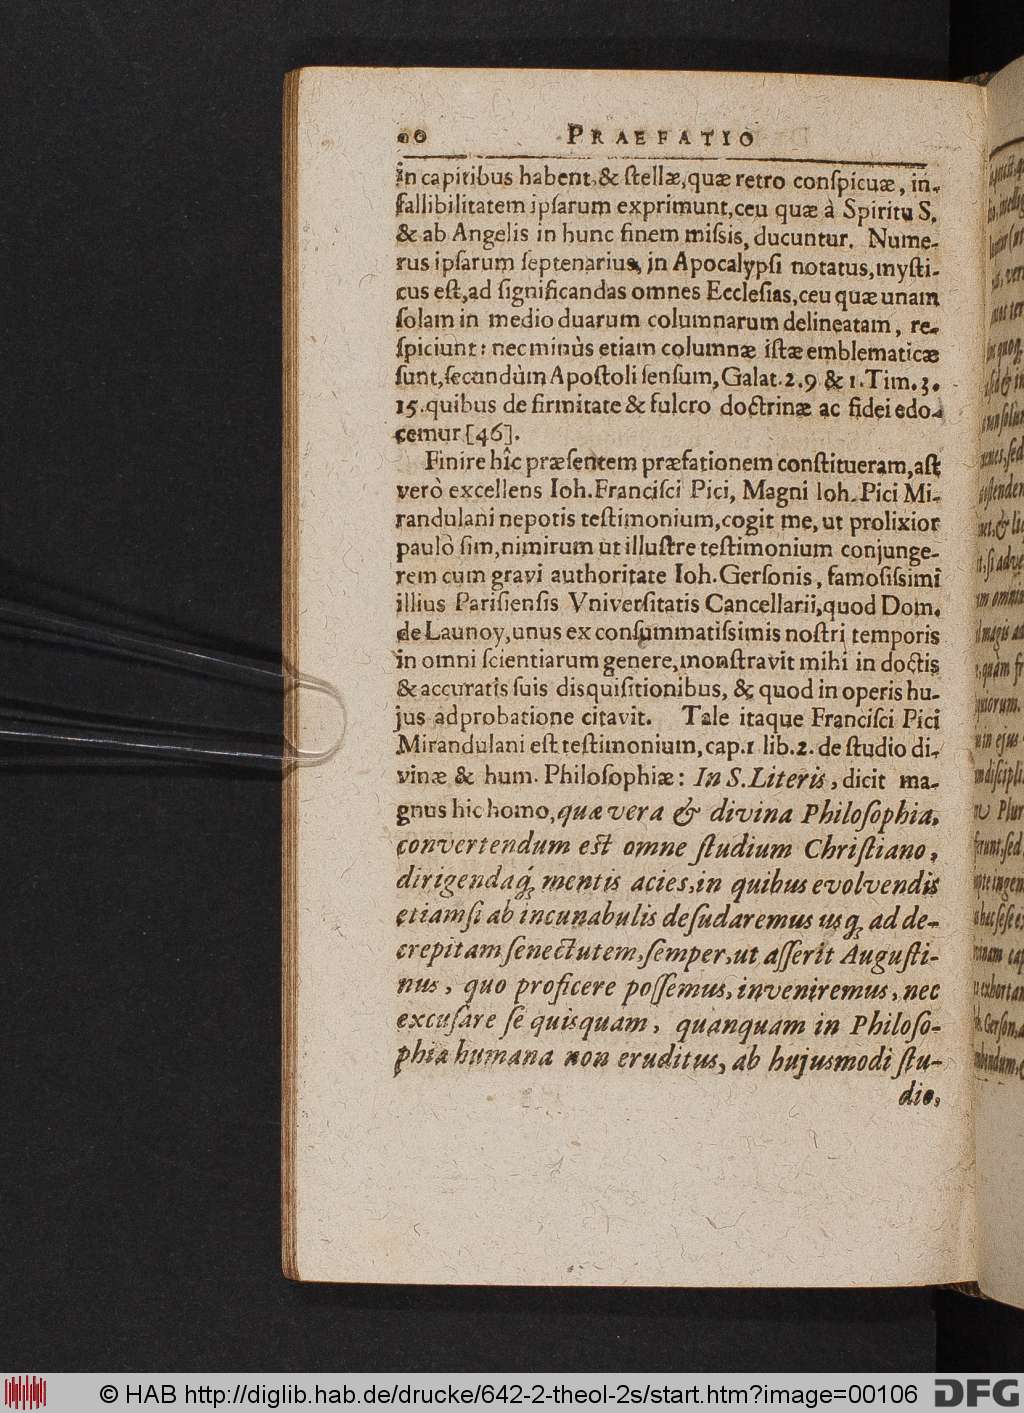 20 PRAEFATIO
in capitibus habent, & ſtellæ, quæ retro conſpicuæ, in-
fallibilitatem ipſarum exprimunt, ceu quæ à Spiritu S.
& ab Angelis in hunc finem miſsis, ducuntur. Nume-
rus ipſarum ſeptenarius, in Apocalypſi notatus, myſti-
cus eſt, ad ſignificandas omnes Eccleſias, ceu quæ unam
ſolam in medio duarum columnarum delineatam, re-
ſpiciunt: nec minùs etiam columnæ iſtæ emblematicæ
ſunt, ſecundùm Apoſtoli ſenſum, Galat. 2. 9 & 1. Tim. 3.
15. quibus de firmitate & fulcro doctrinæ ac fidei edo-
cemur [46].
Finire hîc præſentem præfationem conſtitueram, aſt
verò excellens Ioh. Franciſci Pici, Magni Ioh. Pici Mi-
randulani nepotis teſtimonium, cogit me, ut prolixior
paulò ſim, nimirum ut illuſtre teſtimonium conjunge-
rem cum gravi authoritate Ioh. Gerſonis, famoſiſsimi
illius Pariſienſis Vniverſitatis Cancellarii, quod Dom.
de Launoy, unus ex conſummatiſsimis noſtri temporis
in omni ſcientiarum genere, monſtravit mihi in doctis
& accuratis ſuis disquiſitionibus, & quod in operis hu-
jus adprobatione citavit. Tale itaque Franciſci Pici
Mirandulani eſt teſtimonium, cap. 1 lib. 2. de ſtudio di-
vinæ & hum. Philoſophiæ: In S. Literis, dicit ma-
gnus hic homo, quæ vera & divina Philoſophia,
convertendum eſt omne ſtudium Chriſtiano,
dirigendaq́; mentis acies, in quibus evolvendis
etiamſi ab incunabulis deſudaremus usq́; ad de-
crepitam ſenectutem, ſemper, ut aſſerit Auguſti-
nus, quo proficere poſſemus, inveniremus, nec
excuſare ſe quisquam, quanquam in Philoſo-
phia humana non eruditus, ab hujusmodi ſtu-
dio,
© HAB http://diglib.hab.de/drucke/642-2-theol-2s/start.htm?image=00106 DFG